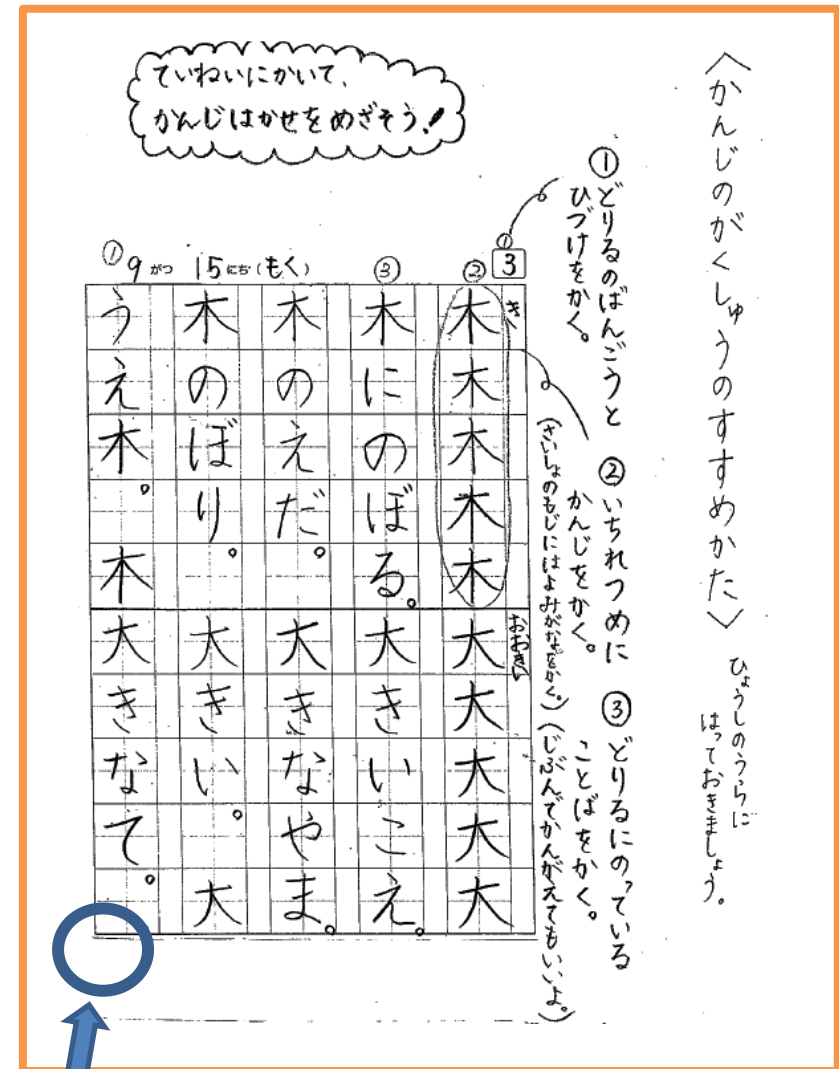 〈かんじのがくしゅうのすすめかた〉
ひょうしのうらに
はっておきましょう。
①どりるのばんごうと
ひづけをかく。
②いちれつめに
かんじをかく。
(さいしょのもじにはよみがなをかく。)
③どりるにのっている
ことばをかく。
(じぶんでかんがえてもいいよ。)
ていねいにかいて、
かんじはかせをめざそう!
① 3
② ③
① 9がつ 15にち(もく)
き おおきい
木木木木木大大大大大
木にのぼる。大きいこえ。
木のえだ。大きなやま。
木のぼり。大きい。大
うえ木。木大きなて。